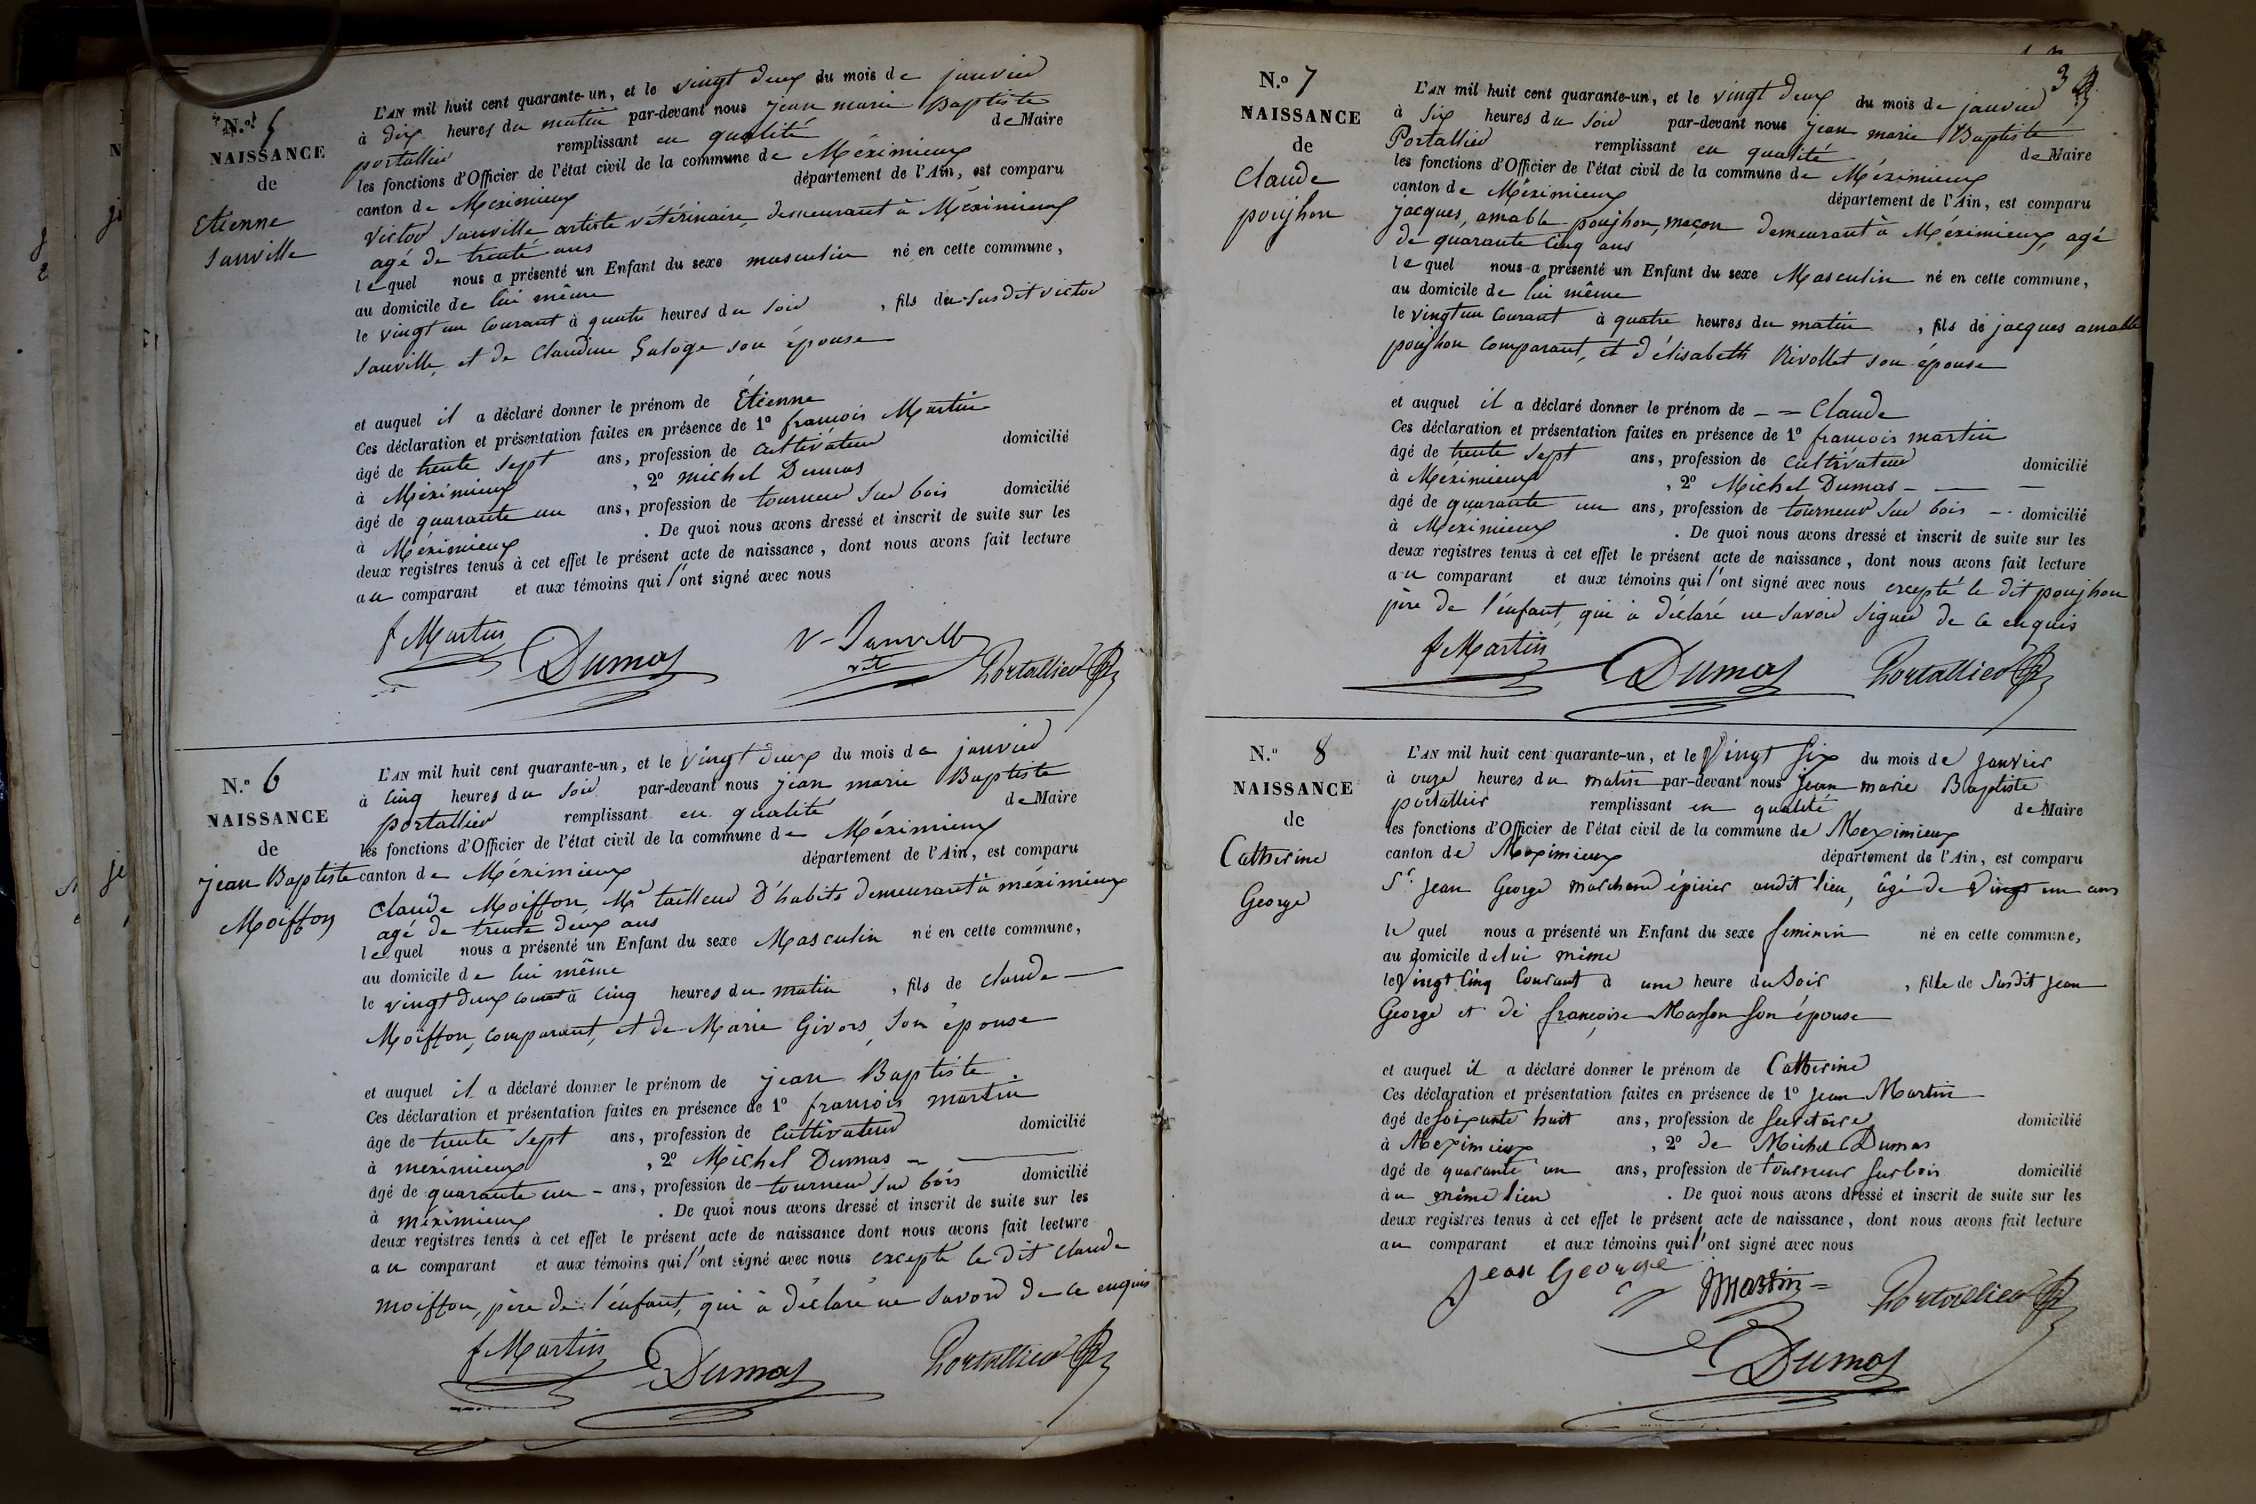 N.o 5
NAISSANCE
de
Etienne
Janville
L'AN mil huit cent quarante-un, et le vingt deux du mois de janvier
à dix heures du matin par-devant nous jean marie Baptiste
portallier remplissant en qualité de Maire
les fonctions d'Officier de l'état civil de la commune de Méximieux
canton de Méximieux département de l'Ain, est comparu
Victor Janville artiste vétérinaire, demeurant à Méximieux
agé de trente ans
lequel nous a présenté un Enfant du sexe masculin né en cette commune,
au domicile de lui même
le vingt un courant à quatre heures du soir, fils du susdit victor
Janville, et de Claudine son épouse
et auquel il a déclaré donner le prénom de Étienne
Ces déclaration et présentation faites en présence de 1o francois Martin
âgé de trente sept ans, profession de cultivateur domicilié
à Méximieux, 2o michel Dumas
âgé de quarante un ans, profession de tourneur sur bois domicilié
à Méximieux. De quoi nous avons dressé et inscrit de suite sur les
deux registres tenus à cet effet le présent acte de naissance, dont nous avons fait lecture
au comparant et aux témoins qui l'ont signé avec nous
f Martin Dumas V. Janville vet Portallier
N.o 6
NAISSANCE
de
jean Baptiste
Moiffon
L'AN mil huit cent quarante-un, et le vingt deux du mois de janvier
à cinq heures du soir par-devant nous jean marie Baptiste
portallier remplissant en qualité de Maire
les fonctions d'Officier de l'état civil de la commune de Méximieux
canton de Méximieux département de l'Ain, est comparu
Claude Moiffon, Md tailleur d'habits demeurant à méximieux
agé de trente deux ans
lequel nous a présenté un Enfant du sexe Masculin né en cette commune,
au domicile de lui même
le vingt deux courant à cinq heures du matin, fils de Claude
Moiffon, comparant, et de Marie Givors, son épouse
et auquel il a déclaré donner le prénom de jean Baptiste
Ces déclaration et présentation faites en présence de 1o francois martin
âge de trente sept ans, profession de cultivateur domicilié
à méximieux, 2o Michel Dumas
âgé de quarante un ans, profession de tourneur sur bois domicilié
à méximieux. De quoi nous avons dressé et inscrit de suite sur les
deux registres tenus à cet effet le présent acte de naissance dont nous avons fait lecture
au comparant et aux témoins qui l'ont signé avec nous excepté le dit Claude
moiffon, père de l'enfant, qui a déclaré ne savoir de ce enquis
f Martin Dumas Portallier
3
N.o 7
NAISSANCE
de
Claude
poujhon
L'AN mil huit cent quarante-un, et le vingt deux du mois de janvier
à six heures du soir par-devant nous jean marie Baptiste
Portallier remplissant en qualité de Maire
les fonctions d'Officier de l'état civil de la commune de Méximieux
canton de Méximieux département de l'Ain, est comparu
jacques, amable poujhon, maçon demeurant à Méximieux, agé
de quarante cinq ans
lequel nous a présenté un Enfant du sexe Masculin né en cette commune,
au domicile de lui même
le vingt un courant à quatre heures du matin, fils de jacques amable
poujhon comparant, et d'élisabeth Rivollet son épouse
et auquel il a déclaré donner le prénom de Claude
Ces déclaration et présentation faites en présence de 1o francois martin
âgé de trente sept ans, profession de cultivateur domicilié
à Méximieux, 2o Michel Dumas
âgé de quarante un ans, profession de tourneur sur bois domicilié
à Méximieux. De quoi nous avons dressé et inscrit de suite sur les
deux registres tenus à cet effet le présent acte de naissance, dont nous avons fait lecture
au comparant et aux témoins qui l'ont signé avec nous excepté le dit poujhon
père de l'enfant, qui a déclaré ne savoir signer de ce enquis
f Martin Dumas Portallier
N.o 8
NAISSANCE
de
Catherine
George
L'AN mil huit cent quarante-un, et le Vingt six du mois de janvier
à onze heures du matin par-devant nous jean marie Baptiste
portallier remplissant en qualité de Maire
les fonctions d'Officier de l'état civil de la commune de Meximieux
canton de Meximieux département de l'Ain, est comparu
Sr. jean George marchand épicier audit lieu, âgé de vingt un ans
lequel nous a présenté un Enfant du sexe feminin né en cette commune,
au domicile de lui même
le Vingt cinq courant à une heure du soir, fille de susdit jean
George et de françoise Masson son épouse
et auquel il a déclaré donner le prénom de Catherine
Ces déclaration et présentation faites en présence de 1o jean Martin
âgé de soixante huit ans, profession de secrétaire domicilié
à Meximieux, 2o de Michel Dumas
âgé de quarante un ans, profession de tourneur sur bois domicilié
au même lieu. De quoi nous avons dressé et inscrit de suite sur les
deux registres tenus à cet effet le présent acte de naissance, dont nous avons fait lecture
au comparant et aux témoins qui l'ont signé avec nous
jean George JMartin Portallier
Dumas